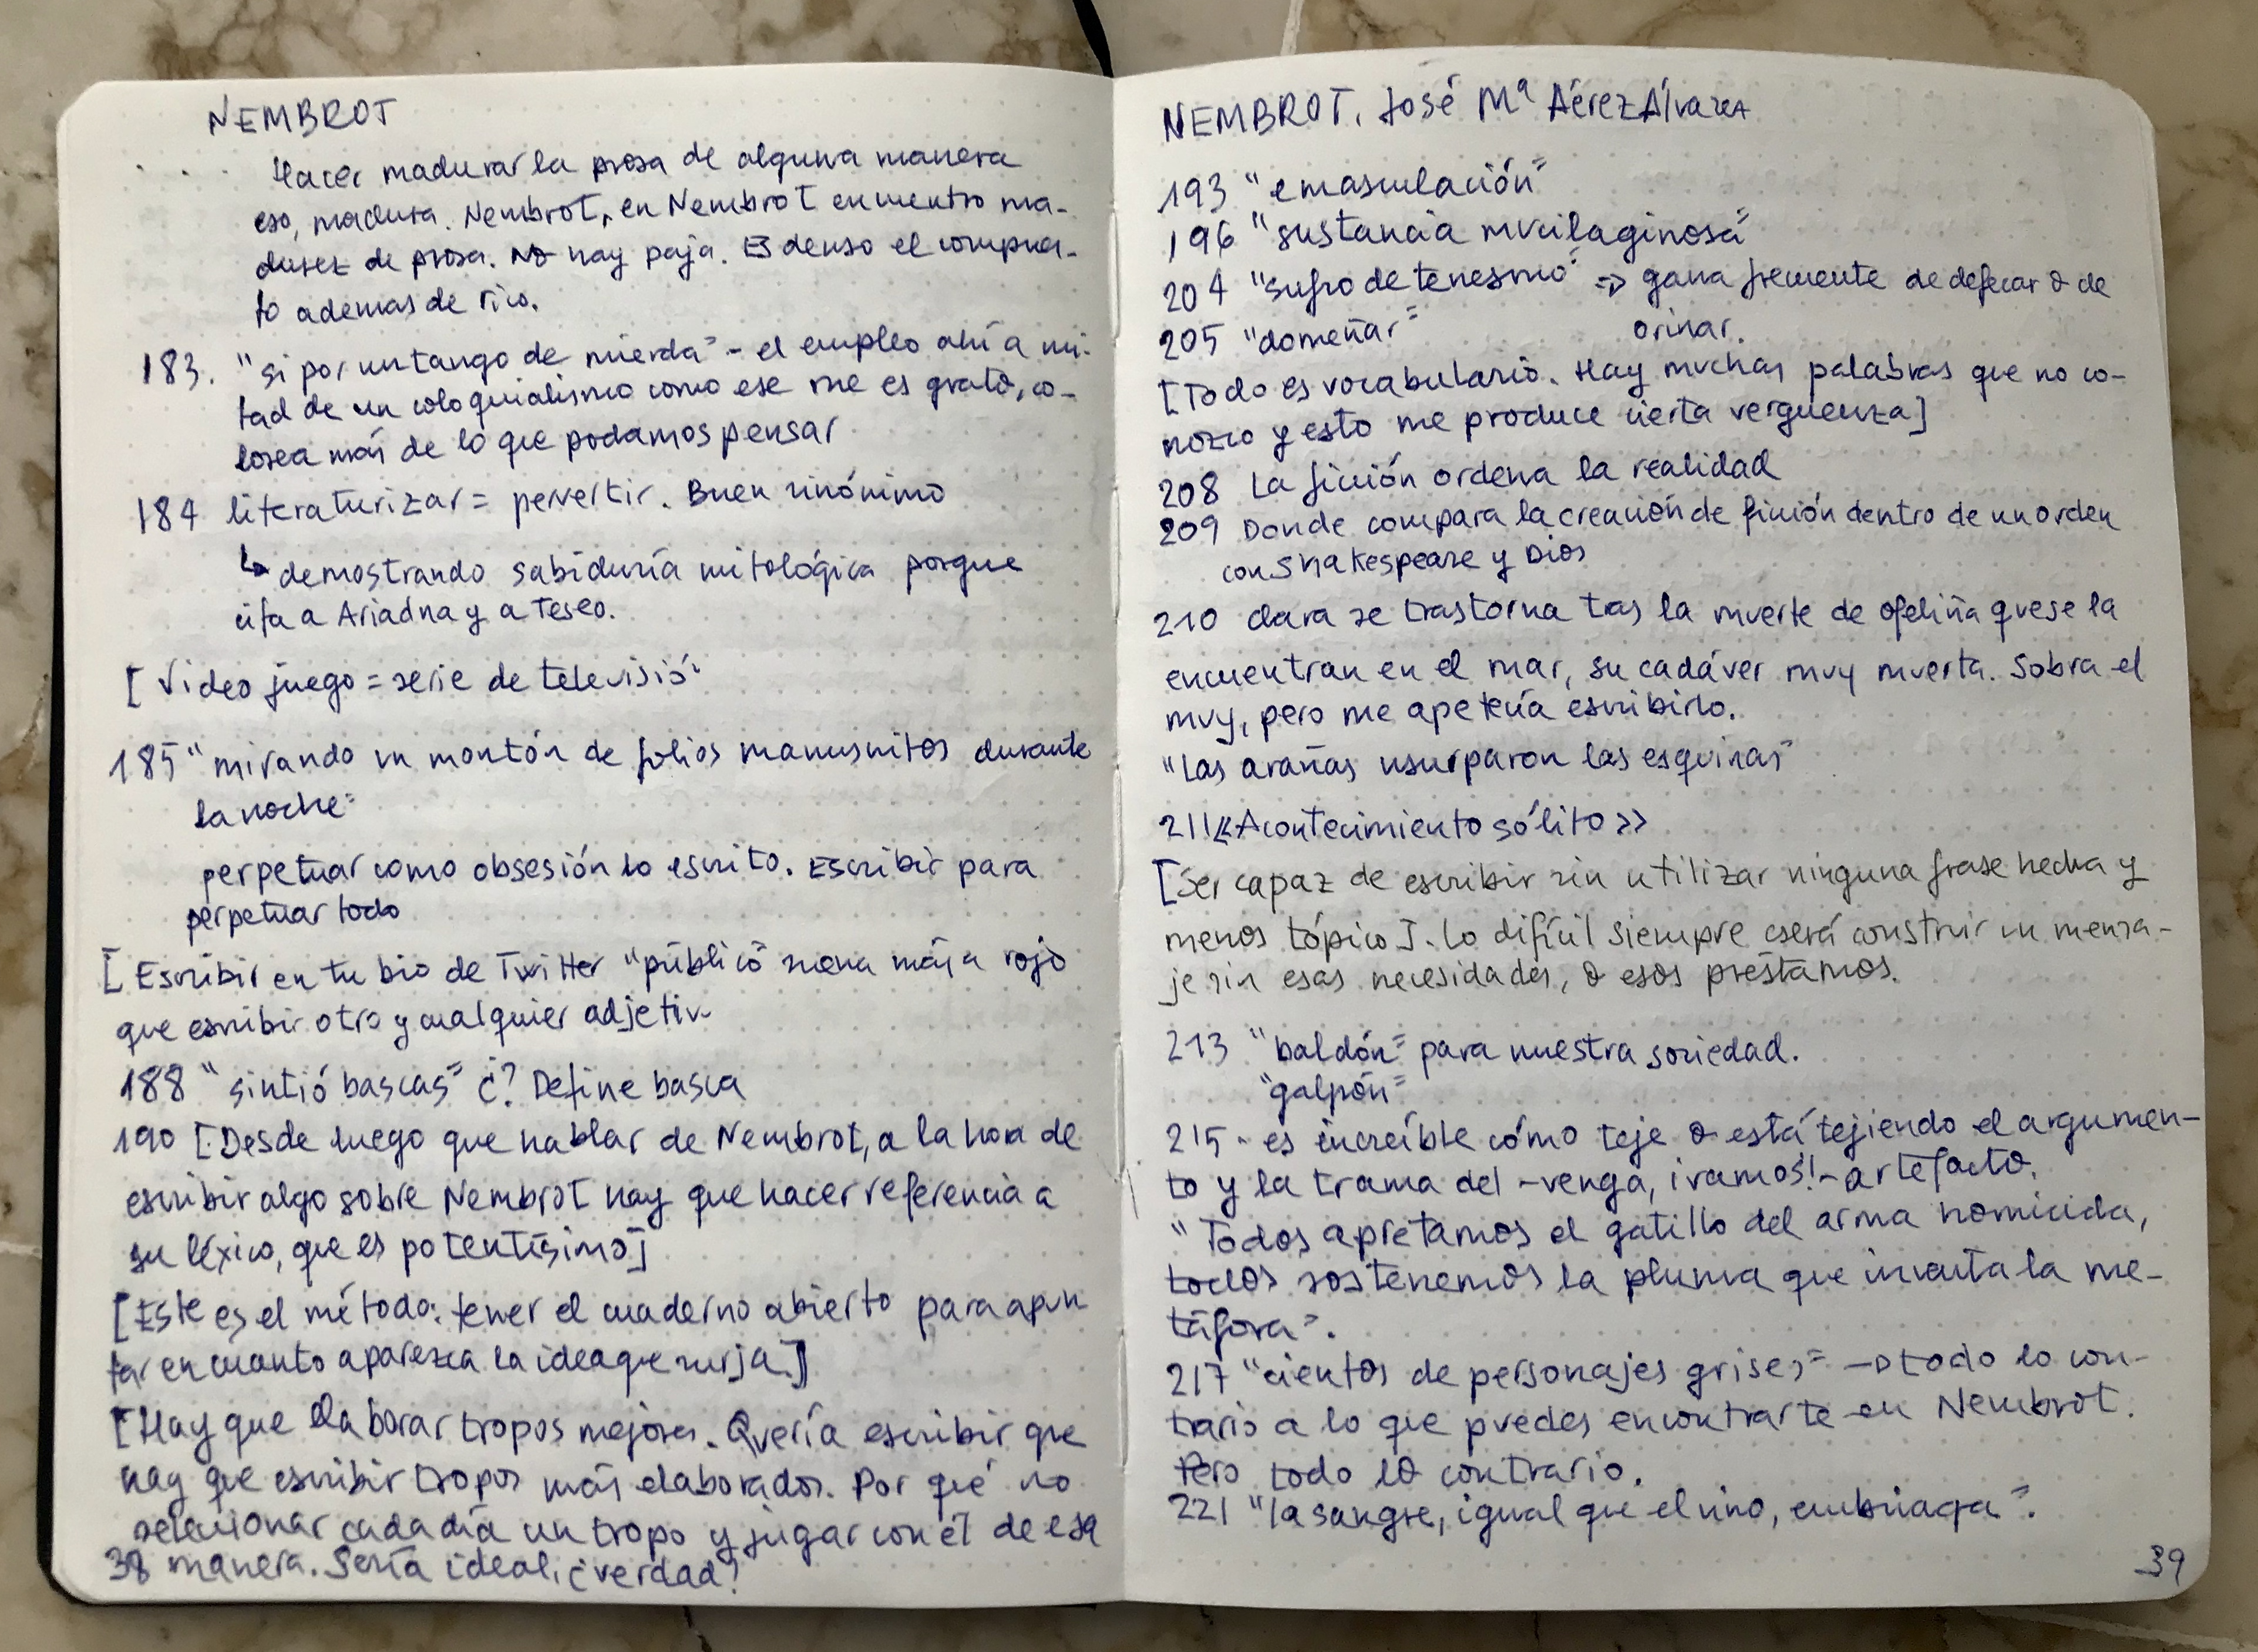 NEMBROT
Hacer madurar la prosa de alguna manera
eso, madura. Nembrot, en Nembrot encuentro ma-
durez de prosa. No hay paja. Es denso el compues-
to ademas de rico.
183. "si por un tango de mierda" - el empleo ahí a mi-
tad de un coloquialismo como ese me es grato, co-
losea más de lo que podamos pensar
184 literaturizar = pervertir. Buen sinónimo
↳ demostrando sabiduría mitológica porque
cita a Ariadna y a Teseo.
[Video juego = serie de televisió
185 "mirando un montón de folios manuscritos durante
la noche"
perpetuar como obsesión lo escrito. Escribir para
perpetuar todo
[Escribir en tu bio de Twitter "público" suena más a rojo
que escribir otro y cualquier adjetiv
188 "sintió bascas" ¿? Define basca
190 [Desde luego que hablar de Nembrot, a la hora de
escribir algo sobre Nembrot hay que hacer referencia a
su léxico, que es potentísimo]
[Este es el método: tener el cuaderno abierto para apun
tar en cuanto aparezca la idea que surja]
[Hay que elaborar tropos mejores. Quería escribir que
hay que escribir tropos más elaborados. Por qué no
seleccionar cada día un tropo y jugar con él de esa
38 manera. Sería ideal, ¿verdad?
NEMBROT. José Mª Pérez Álvarez
193 "emasculación"
196 "sustancia mucilaginosa"
204 "sufro de tenesmo" => gana fremente de defecar o de
orinar.
205 "domeñar"
[Todo es vocabulario. Hay muchas palabras que no co-
nozco y esto me produce cierta verguenza]
208 La ficción ordena la realidad
209 Donde compara la creación de ficción dentro de un orden
con Shakespeare y Dios
210 Clara se trastorna tras la muerte de Ofeliña que se la
encuentran en el mar, su cadáver muy muerta. Sobra el
muy, pero me apetecía escribirlo.
"Las arañas usurparon las esquinas"
211 «Acontecimiento sólito»
[Ser capaz de escribir sin utilizar ninguna frase hecha y
menos tópico]. Lo difícil siempre será construir un mensa-
je sin esas necesidades, o esos prestamos.
213 "baldón" para nuestra sociedad.
"galpón"
215 - es increíble cómo teje o está tejiendo el argumen-
to y la trama del -venga, ¡vamos!- artefacto.
"Todos apretamos el gatillo del arma homicida,
todos sostenemos la pluma que inventa la me-
táfora".
217 "cientos de personajes grises" -> todo lo con-
trario a lo que puedes encontrarte en Nembrot.
Pero todo lo contrario.
221 "la sangre, igual que el vino, embriaga".
39